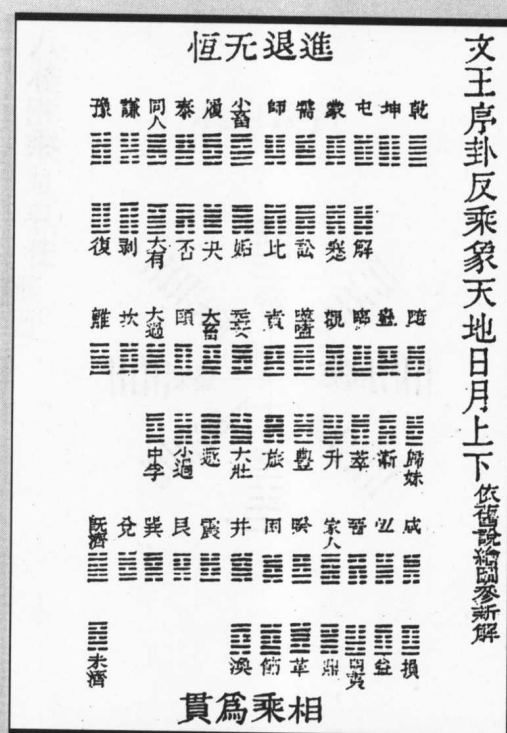 文王序卦反乘象天地日月上下
依舊說編圖參新解
進退无恒
乾 坤 屯 蒙 需 師 小畜 履 泰 同人 謙 豫
解 蹇 訟 比 姤 夬 否 大有 剝 復
隨 蠱 臨 觀 噬嗑 賁 无妄 大畜 頤 大過 坎 離
歸妹 漸 萃 升 豐 旅 大壯 遯 小過 中孚
咸 恒 晉 家人 睽 困 井 震 艮 巽 兌 既濟
損 益 明夷 鼎 革 節 渙 未濟
相乘爲貫